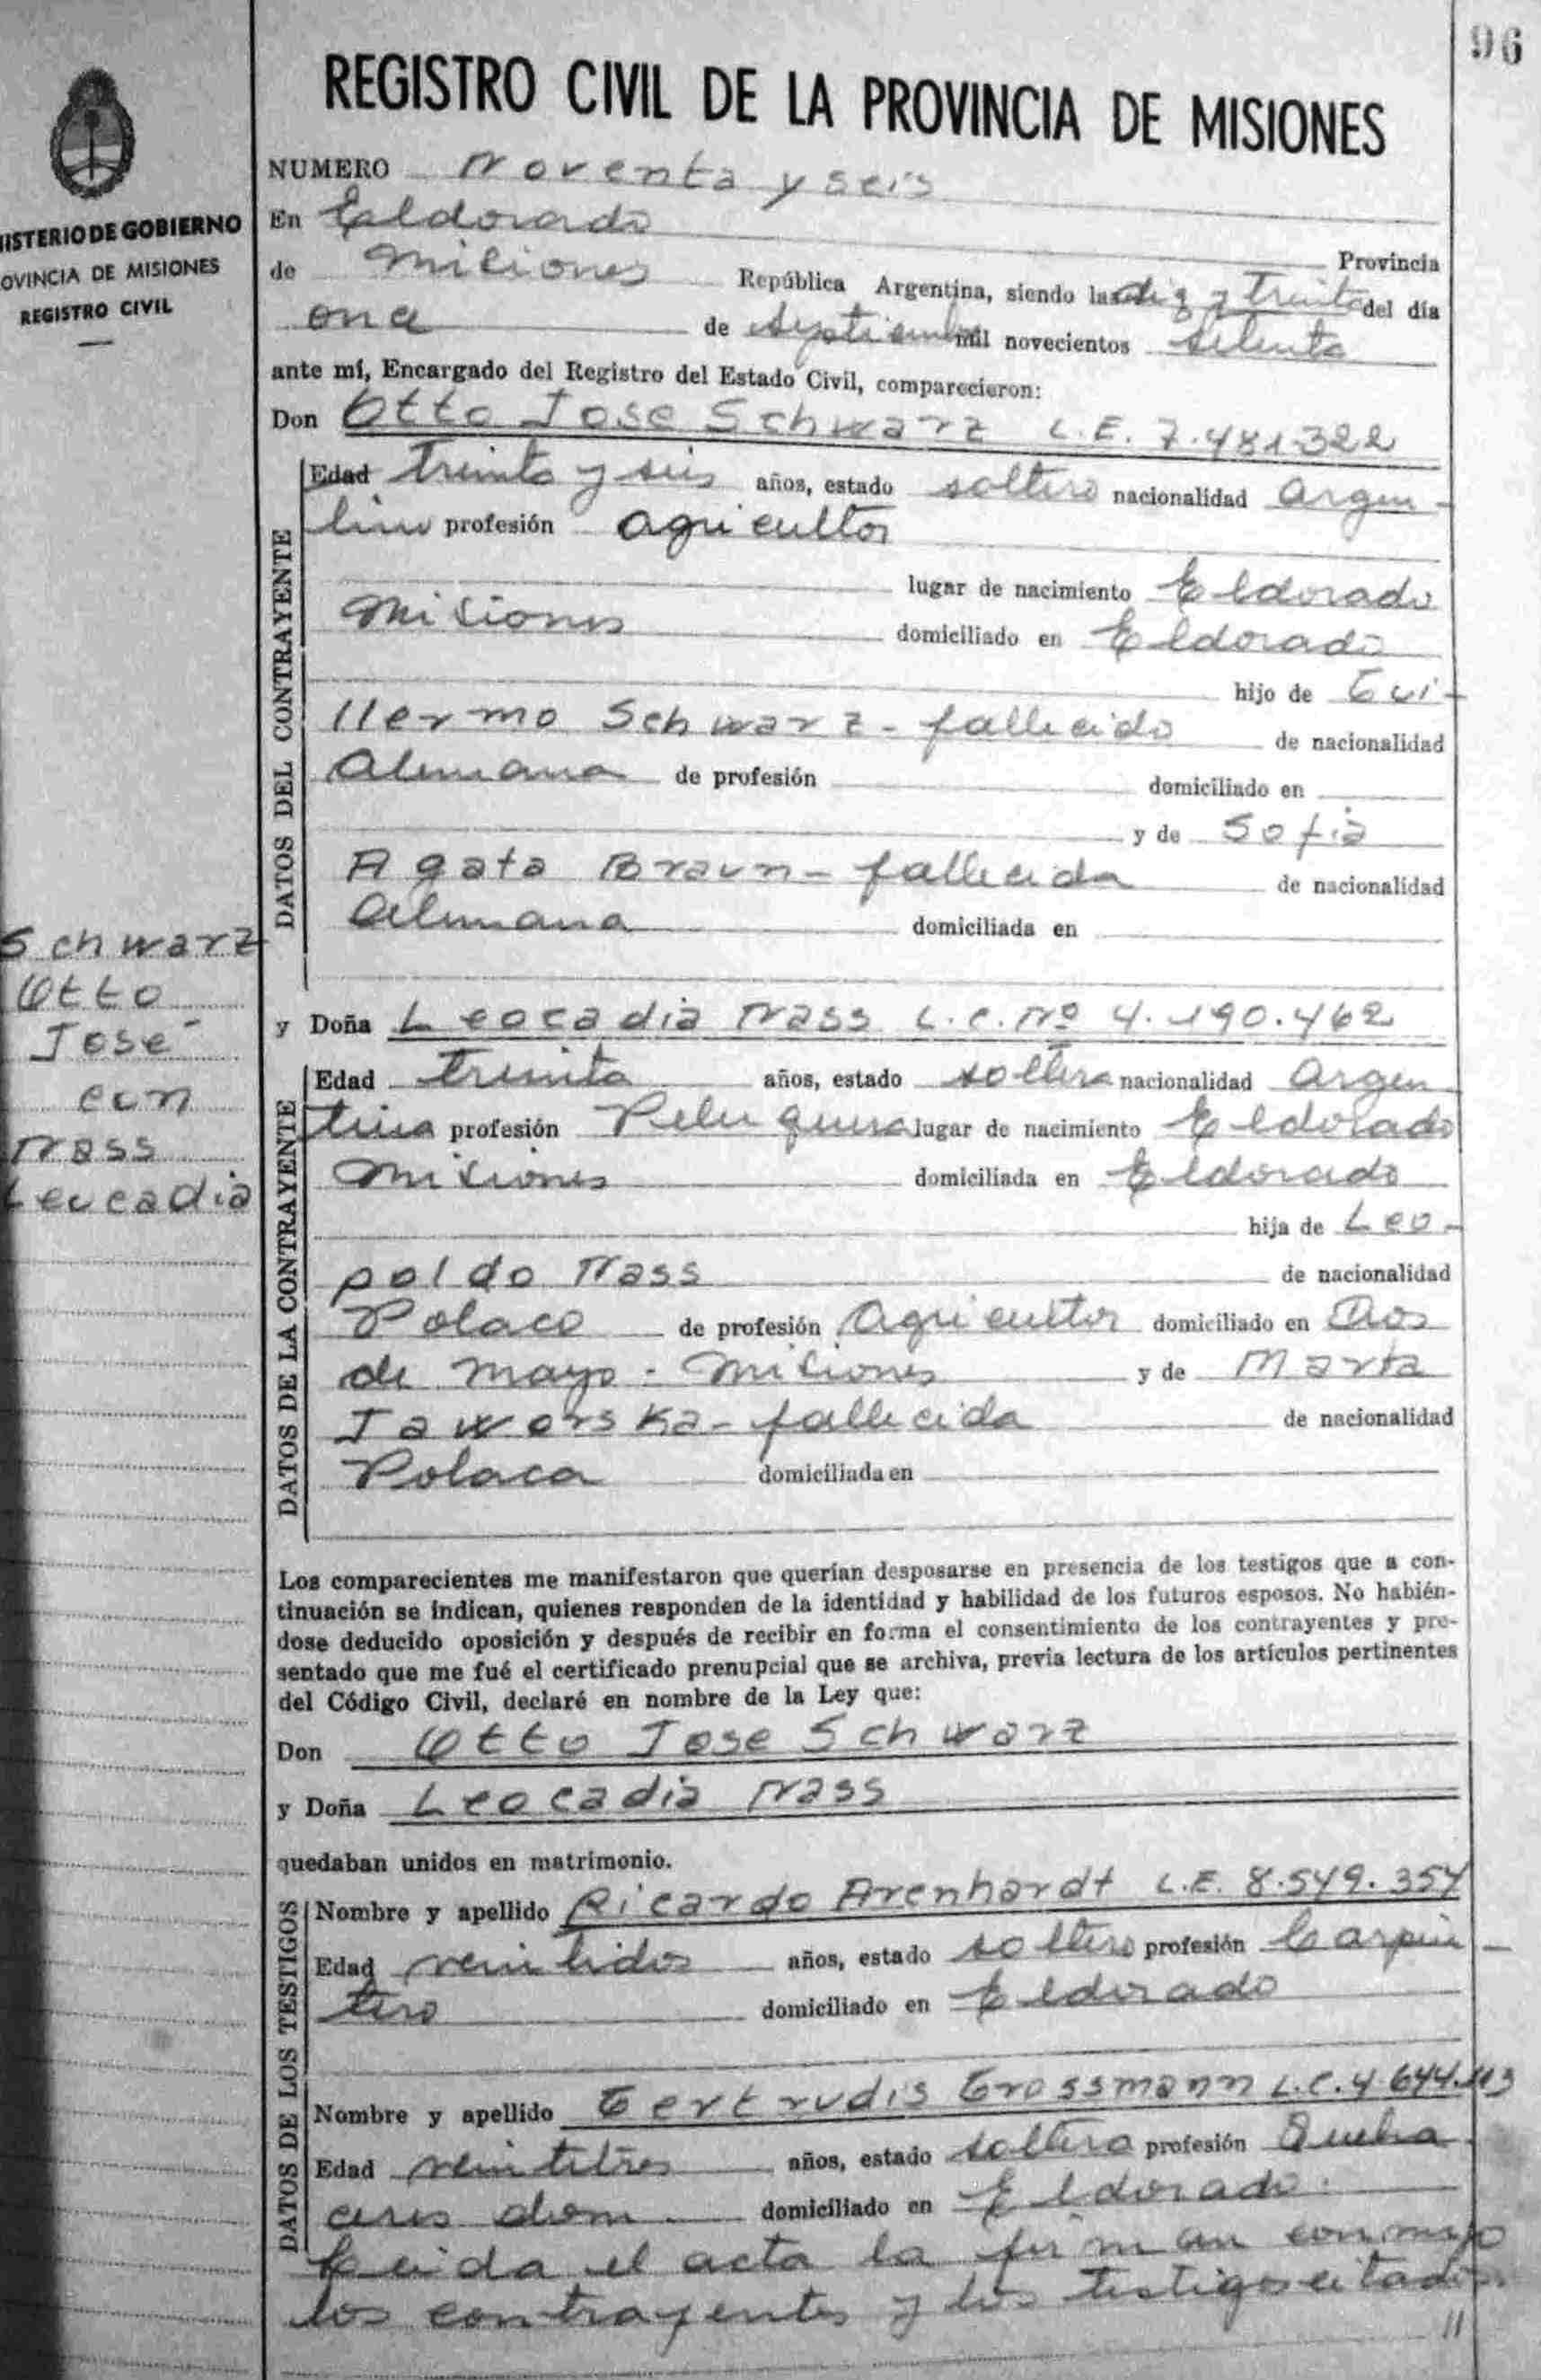 96
REGISTRO CIVIL DE LA PROVINCIA DE MISIONES
ISTERIO DE GOBIERNO
OVINCIA DE MISIONES
REGISTRO CIVIL
NUMERO Noventa y seis
En Eldorado Provincia
de Misiones República Argentina, siendo las diez y treinta del día
once de septiembre mil novecientos setenta
ante mí, Encargado del Registro del Estado Civil, comparecieron:
Don Otto Jose Schwarz L.E. 7.481.322
DATOS DEL CONTRAYENTE
Edad treinta y seis años, estado soltero nacionalidad argen-
tino profesión agricultor
lugar de nacimiento Eldorado
Misiones domiciliado en Eldorado
hijo de Gui-
llermo Schwarz - fallecido de nacionalidad
Alemana de profesión domiciliado en
y de Sofia
Agata Braun - fallecida de nacionalidad
Alemana domiciliada en
Schwarz
Otto
José
con
Nass
Leocadia
y Doña Leocadia Nass L.C. Nº 4.190.462
DATOS DE LA CONTRAYENTE
Edad treinta años, estado soltera nacionalidad Argen
tina profesión Peluquera lugar de nacimiento Eldorado
Misiones domiciliada en Eldorado
hija de Leo-
poldo Nass de nacionalidad
Polaco de profesión Agricultor domiciliado en Dos
de Mayo - Misiones y de Marta
Jaworska - fallecida de nacionalidad
Polaca domiciliada en
Los comparecientes me manifestaron que querían desposarse en presencia de los testigos que a con-
tinuación se indican, quienes responden de la identidad y habilidad de los futuros esposos. No habién-
dose deducido oposición y después de recibir en forma el consentimiento de los contrayentes y pre-
sentado que me fué el certificado prenupcial que se archiva, previa lectura de los artículos pertinentes
del Código Civil, declaré en nombre de la Ley que:
Don Otto Jose Schwarz
y Doña Leocadia Nass
quedaban unidos en matrimonio.
DATOS DE LOS TESTIGOS
Nombre y apellido Ricardo Arenhardt L.E. 8.549.354
Edad veintidos años, estado soltero profesión Carpin-
tero domiciliado en Eldorado
Nombre y apellido Gertrudis Grossmann L.C. 4.644.113
Edad veintitres años, estado soltera profesión Queha
ceres dom. domiciliado en Eldorado.
Leida el acta la firman conmigo
los contrayentes y los testigos citados.
//